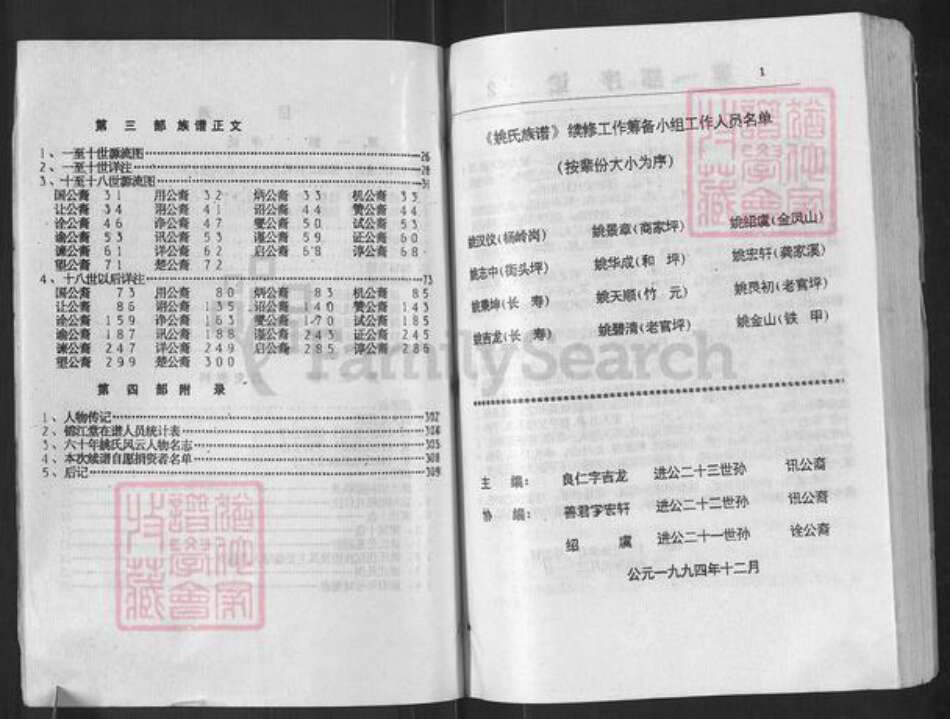 第 三 部 族 谱 正 文
1、一至十世源流图 26
2、一至十世详注 28
3、十至十八世源流图 31
国公裔 31 用公裔 32 炳公裔 33 机公裔 33
让公裔 34 诏公裔 44 赞公裔 44
诠公裔 46 诤公裔 47 燮公裔 50 试公裔 53
谕公裔 53 讯公裔 53 谨公裔 59 证公裔 60
谏公裔 61 详公裔 62 启公裔 68 谆公裔 68
望公裔 71 楚公裔 72
4、十八世以后详注 73
国公裔 73 用公裔 80 炳公裔 83 机公裔 85
让公裔 86 135 诏公裔 140 赞公裔 143
诠公裔 159 诤公裔 163 燮公裔 170 试公裔 185
谕公裔 187 讯公裔 188 谨公裔 243 证公裔 245
谏公裔 247 详公裔 249 启公裔 285 谆公裔 286
望公裔 299 楚公裔 300
第 四 部 附 录
1、人物传记 302
2、锦江堂在谱人员统计表 304
3、六十年姚氏风云人物名志 305
4、本次续谱自愿捐资者名单 308
5、后记 309
1
《姚氏族谱》续修工作筹备小组工作人员名单
(按辈份大小为序)
姚汉仪(杨岭岗) 姚景章(商家坪) 姚绍虞(金凤山)
姚志中(街头坪) 姚华成(和 坪) 姚宏轩(龚家溪)
姚秉坤(长 寿) 姚天顺(竹 元) 姚良初(老官坪)
姚吉龙(长 寿) 姚碧清(老官坪) 姚金山(铁 甲)
主 编: 良仁字吉龙 进公二十三世孙 讯公裔
协 编: 善君字宏轩 进公二十二世孙 讯公裔
绍 虞 进公二十一世孙 诠公裔
公元一九九四年十二月
FamilySearch